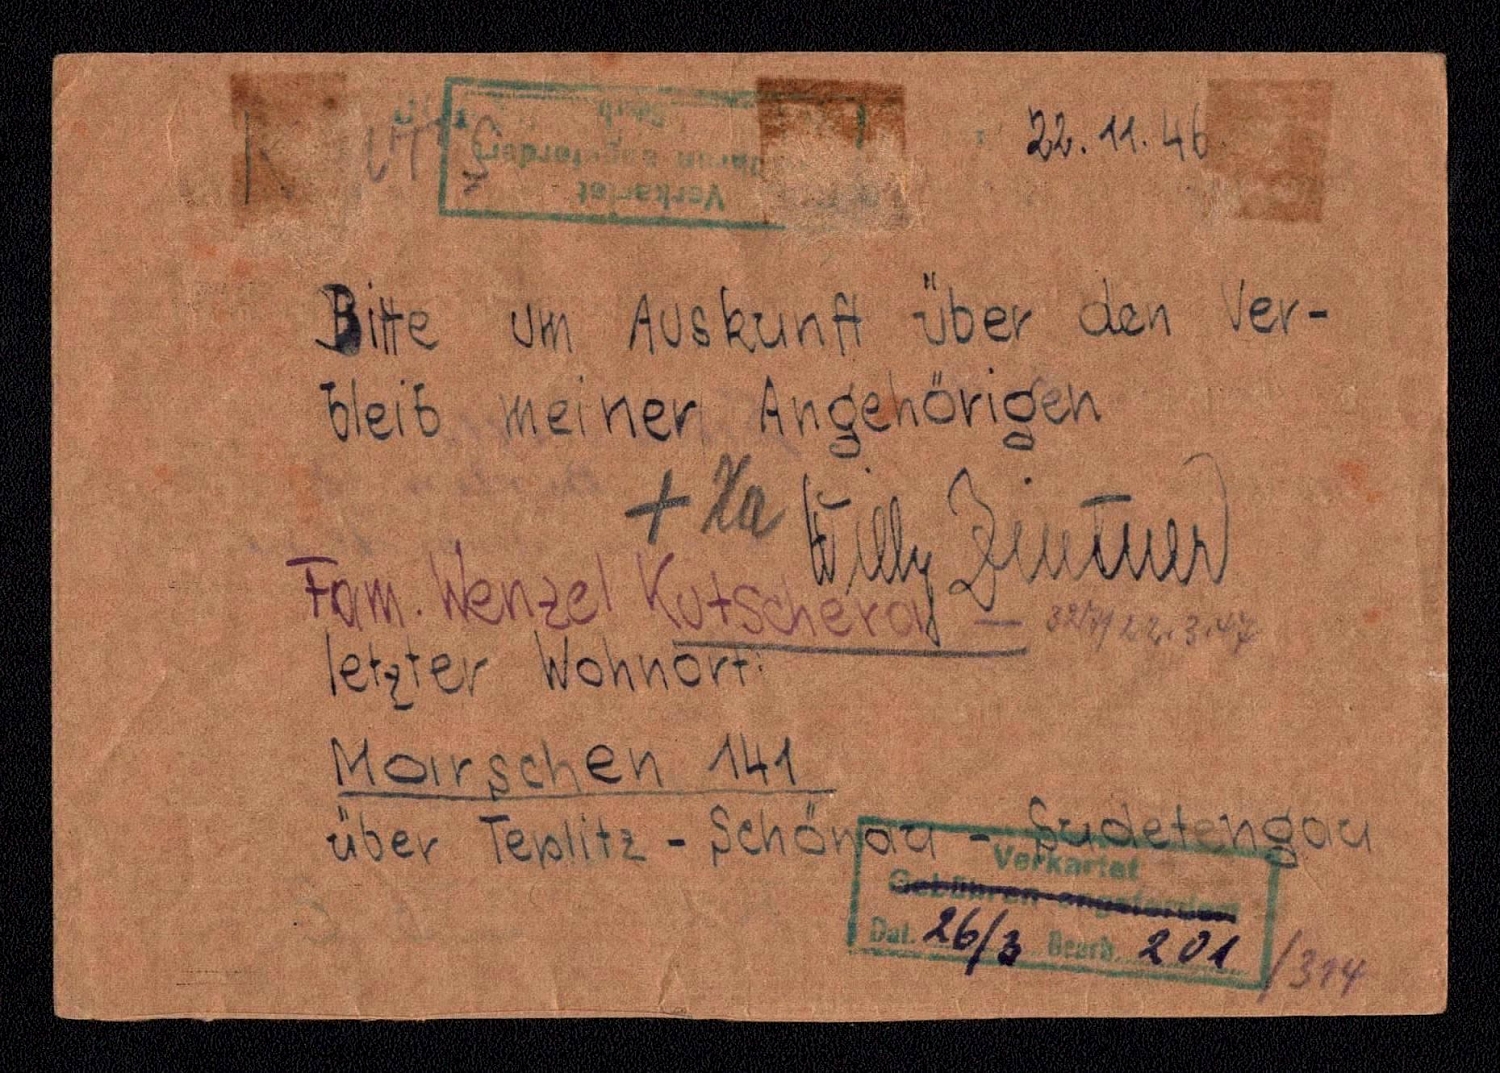 22.11.46.
Verkartet
Bitte um Auskunft über den Ver-
bleib meiner Angehörigen
+ Ka Willy Zintner
Fam. Wenzel Kutschera — 22.3.47
letzter Wohnort:
Marschen 141
über Teplitz - Schönau - Sudetengau
Verkartet
Gebühren angefordert
Dat. 26/3 Bearb. 201 /314